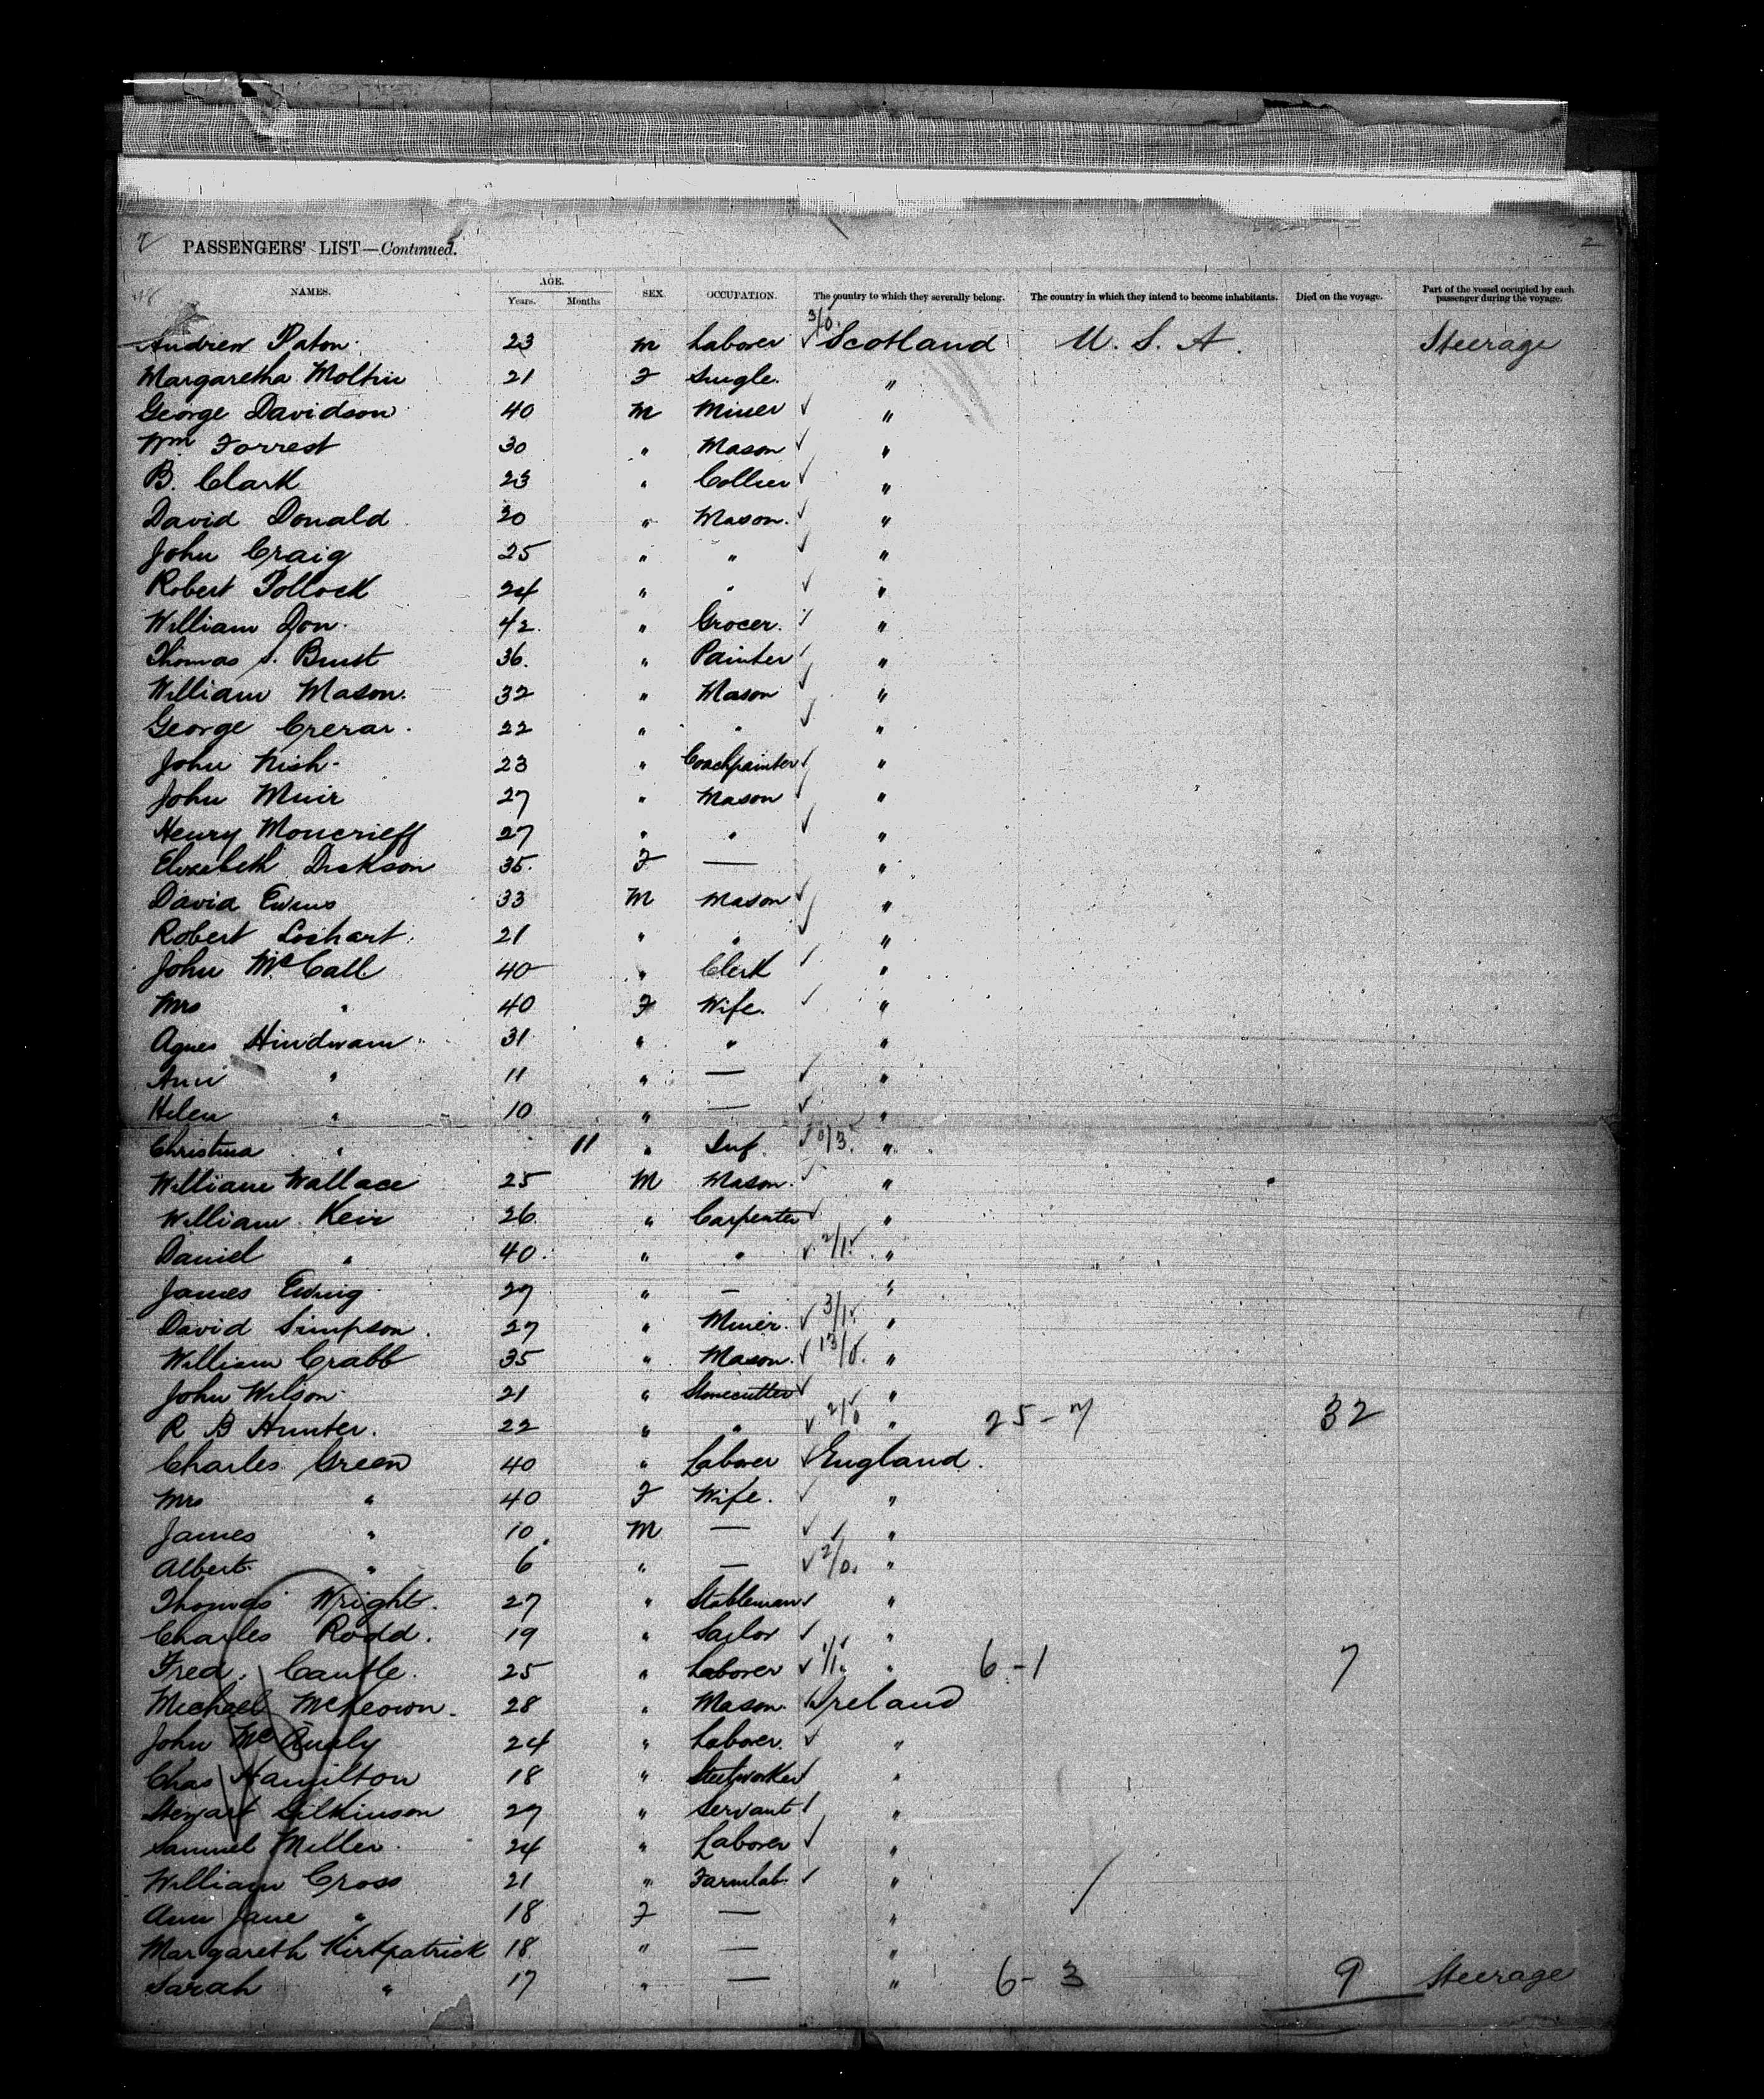 2
PASSENGERS' LIST—Continued.
NAMES. AGE. Years. Months SEX. OCCUPATION. The country to which they severally belong. The country in which they intend to become inhabitants. Died on the voyage. Part of the vessel occupied by each passenger during the voyage.
Andrew Paton. 23 M Laborer ✓ 3/0. Scotland U. S. A. Steerage
Margaretha 21 F Single. "
George Davidson 40 M Miner ✓ "
Wm Forrest 30 " Mason ✓ "
B. Clark 23 " Collier ✓ "
David Donald 20 " Mason. ✓ "
John Craig 25 " " ✓ "
Robert Pollock 24 " " ✓ "
William Don. 42. " Grocer. ✓ "
Thomas S. 36. " Painter ✓ "
William Mason. 32 " Mason ✓ "
George Crerar. 22 " " ✓ "
John Nish. 23 " Coachpainter ✓ "
John Muir 27 " Mason ✓ "
Henry Moncrieff 27 " " ✓ "
Elizabeth Dickson 35. F — "
David Ewins 33 M Mason ✓ "
Robert Lochart. 21 " " ✓ "
John McCall 40 " Clerk ✓ "
Mrs " 40 F Wife. ✓ "
Agnes 31 " " "
Ann " 11 " — ✓ "
Helen " 10 " — ✓ "
Christina " 11 " Inf. ✓ 0/3. "
William Wallace 25 M Mason. ✓ "
William Keir 26 " Carpenter ✓ "
Daniel " 40. " " ✓ 2/1. "
James Ewing 27 " — "
David Simpson. 27 " Miner. ✓ 3/1. "
William Crabb 35 " Mason. ✓ 13/0. "
John Wilson 21 " Stonecutter ✓ "
R B Hunter. 22 " " ✓ 2/0 " 25-7 32
Charles Green 40 " Laborer ✓ England.
Mrs " 40 F Wife. ✓ "
James " 10. M — ✓ "
Albert. " 6 " — ✓ 2/0. "
Thomas Wright. 27 " Stableman ✓ "
Charles Rodd. 19 " Sailor ✓ "
Fred. Cantle. 25 " Laborer ✓ 1/1. " 6-1 7
Michael McKeown. 28 " Mason. Ireland
John McAualy 24 " Laborer. ✓ "
Chas Hamilton 18 " Steelworker ✓ "
Stewart Gilkinson 27 " Servant ✓ "
Samuel Miller. 24 " Laborer ✓ "
William Cross 21 " Farmlab. ✓ "
Ann Jane " 18 F — "
Margareth Kirkpatrick 18. " — "
Sarah " 17 " — " 6-3 9 Steerage